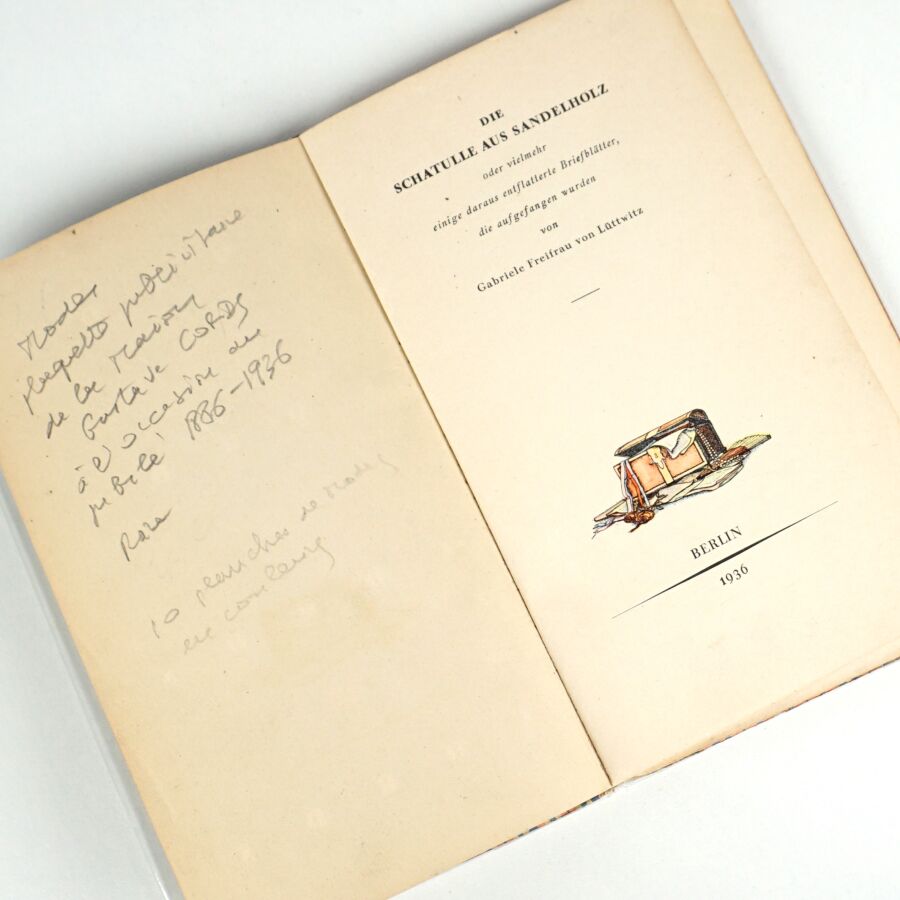 Modes
plaquette publicitaire
de la maison
Gustave CORDS
à l'occasion du
jubilé 1886-1936
Rare
10 planches de modes
en couleurs
DIE
SCHATULLE AUS SANDELHOLZ
oder vielmehr
einige daraus entflatterte Briefblätter,
die aufgefangen wurden
von
Gabriele Freifrau von Lüttwitz
BERLIN
1936